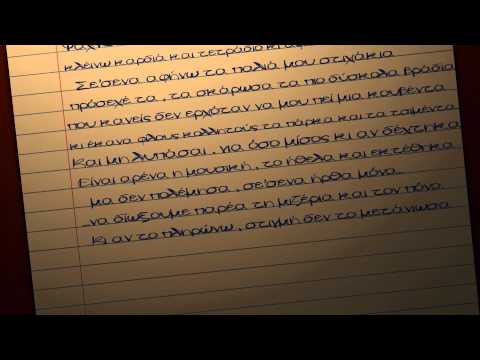 κλείνω καρδιά και τετράδιο και
Σε σένα αφήνω τα παλιά μου στιχάκια
πρόσεχέ τα, τα σκάρωσα τα πιο δύσκολα βράδια
που κανείς δεν ερχόταν να μου πεί μια κουβέντα
κι έκανα φίλους κολλητούς τα πάρκα και τα τσιμέντα
Και μη λυπάσαι, για όσο μίσος κι αν δέχτηκα
Είναι αρένα η μουσική, το ήθελα και εκτέθηκα
μα δεν πολέμησα, σε σένα ήρθα μόνο..
να διώξουμε παρέα τη μιζέρια και τον πόνο
Κι αν το πληρώνω, στιγμή δεν το μετάνιωσα